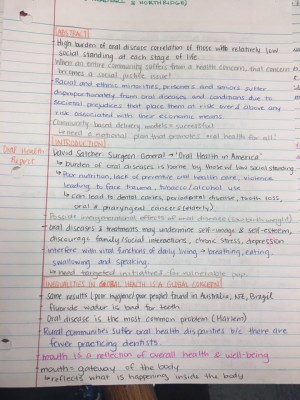 & NORTHRIDGE)
ABSTRACT
- High burden of oral disease correlation of those with relatively low
social standing at each stage of life
- When an entire community suffers from a health concern, that concern
becomes a social justice issue!
- Racial and ethnic minorities, prisoners and seniors suffer
disproportionately from oral diseases and conditions due to
societal prejudices that place them at risk over & above any
risk associated with their economic means.
- Community based delivery models = successful
↳ need a national plan that promotes oral health for all
Oral Health Report
INTRODUCTION
David Satcher Surgeon General → 'Oral Health in America'
↳ burden of oral diseases is borne by those w/ low social standing
- Poor nutrition, lack of preventive oral health care, violence
leading to face trauma, tobacco/alcohol use
↳ can lead to dental caries, periodontal disease, tooth loss,
oral & pharyngeal cancers (elderly)
- Possible intergenerational effects of oral disease (low birth weight)
- Oral diseases & treatments may undermine self-image & self-esteem,
discourage family/social interactions, chronic stress, depression
- interfere with vital functions of daily living → breathing, eating,
swallowing and speaking.
↳ need targeted initiatives for vulnerable pop.
INEQUALITIES IN ORAL HEALTH IS A GLOBAL CONCERN
- Same results (poor hygiene/ poor people) found in Australia, NZ, Brazil
- fluoride water is good for teeth
- Oral disease is the most common problem (Harlem)
- Rural communities suffer oral health disparities b/c there are
fewer practicing dentists.
- mouth is a reflection of overall health & well-being
mouth = gateway of the body
↳ reflects what is happening inside the body